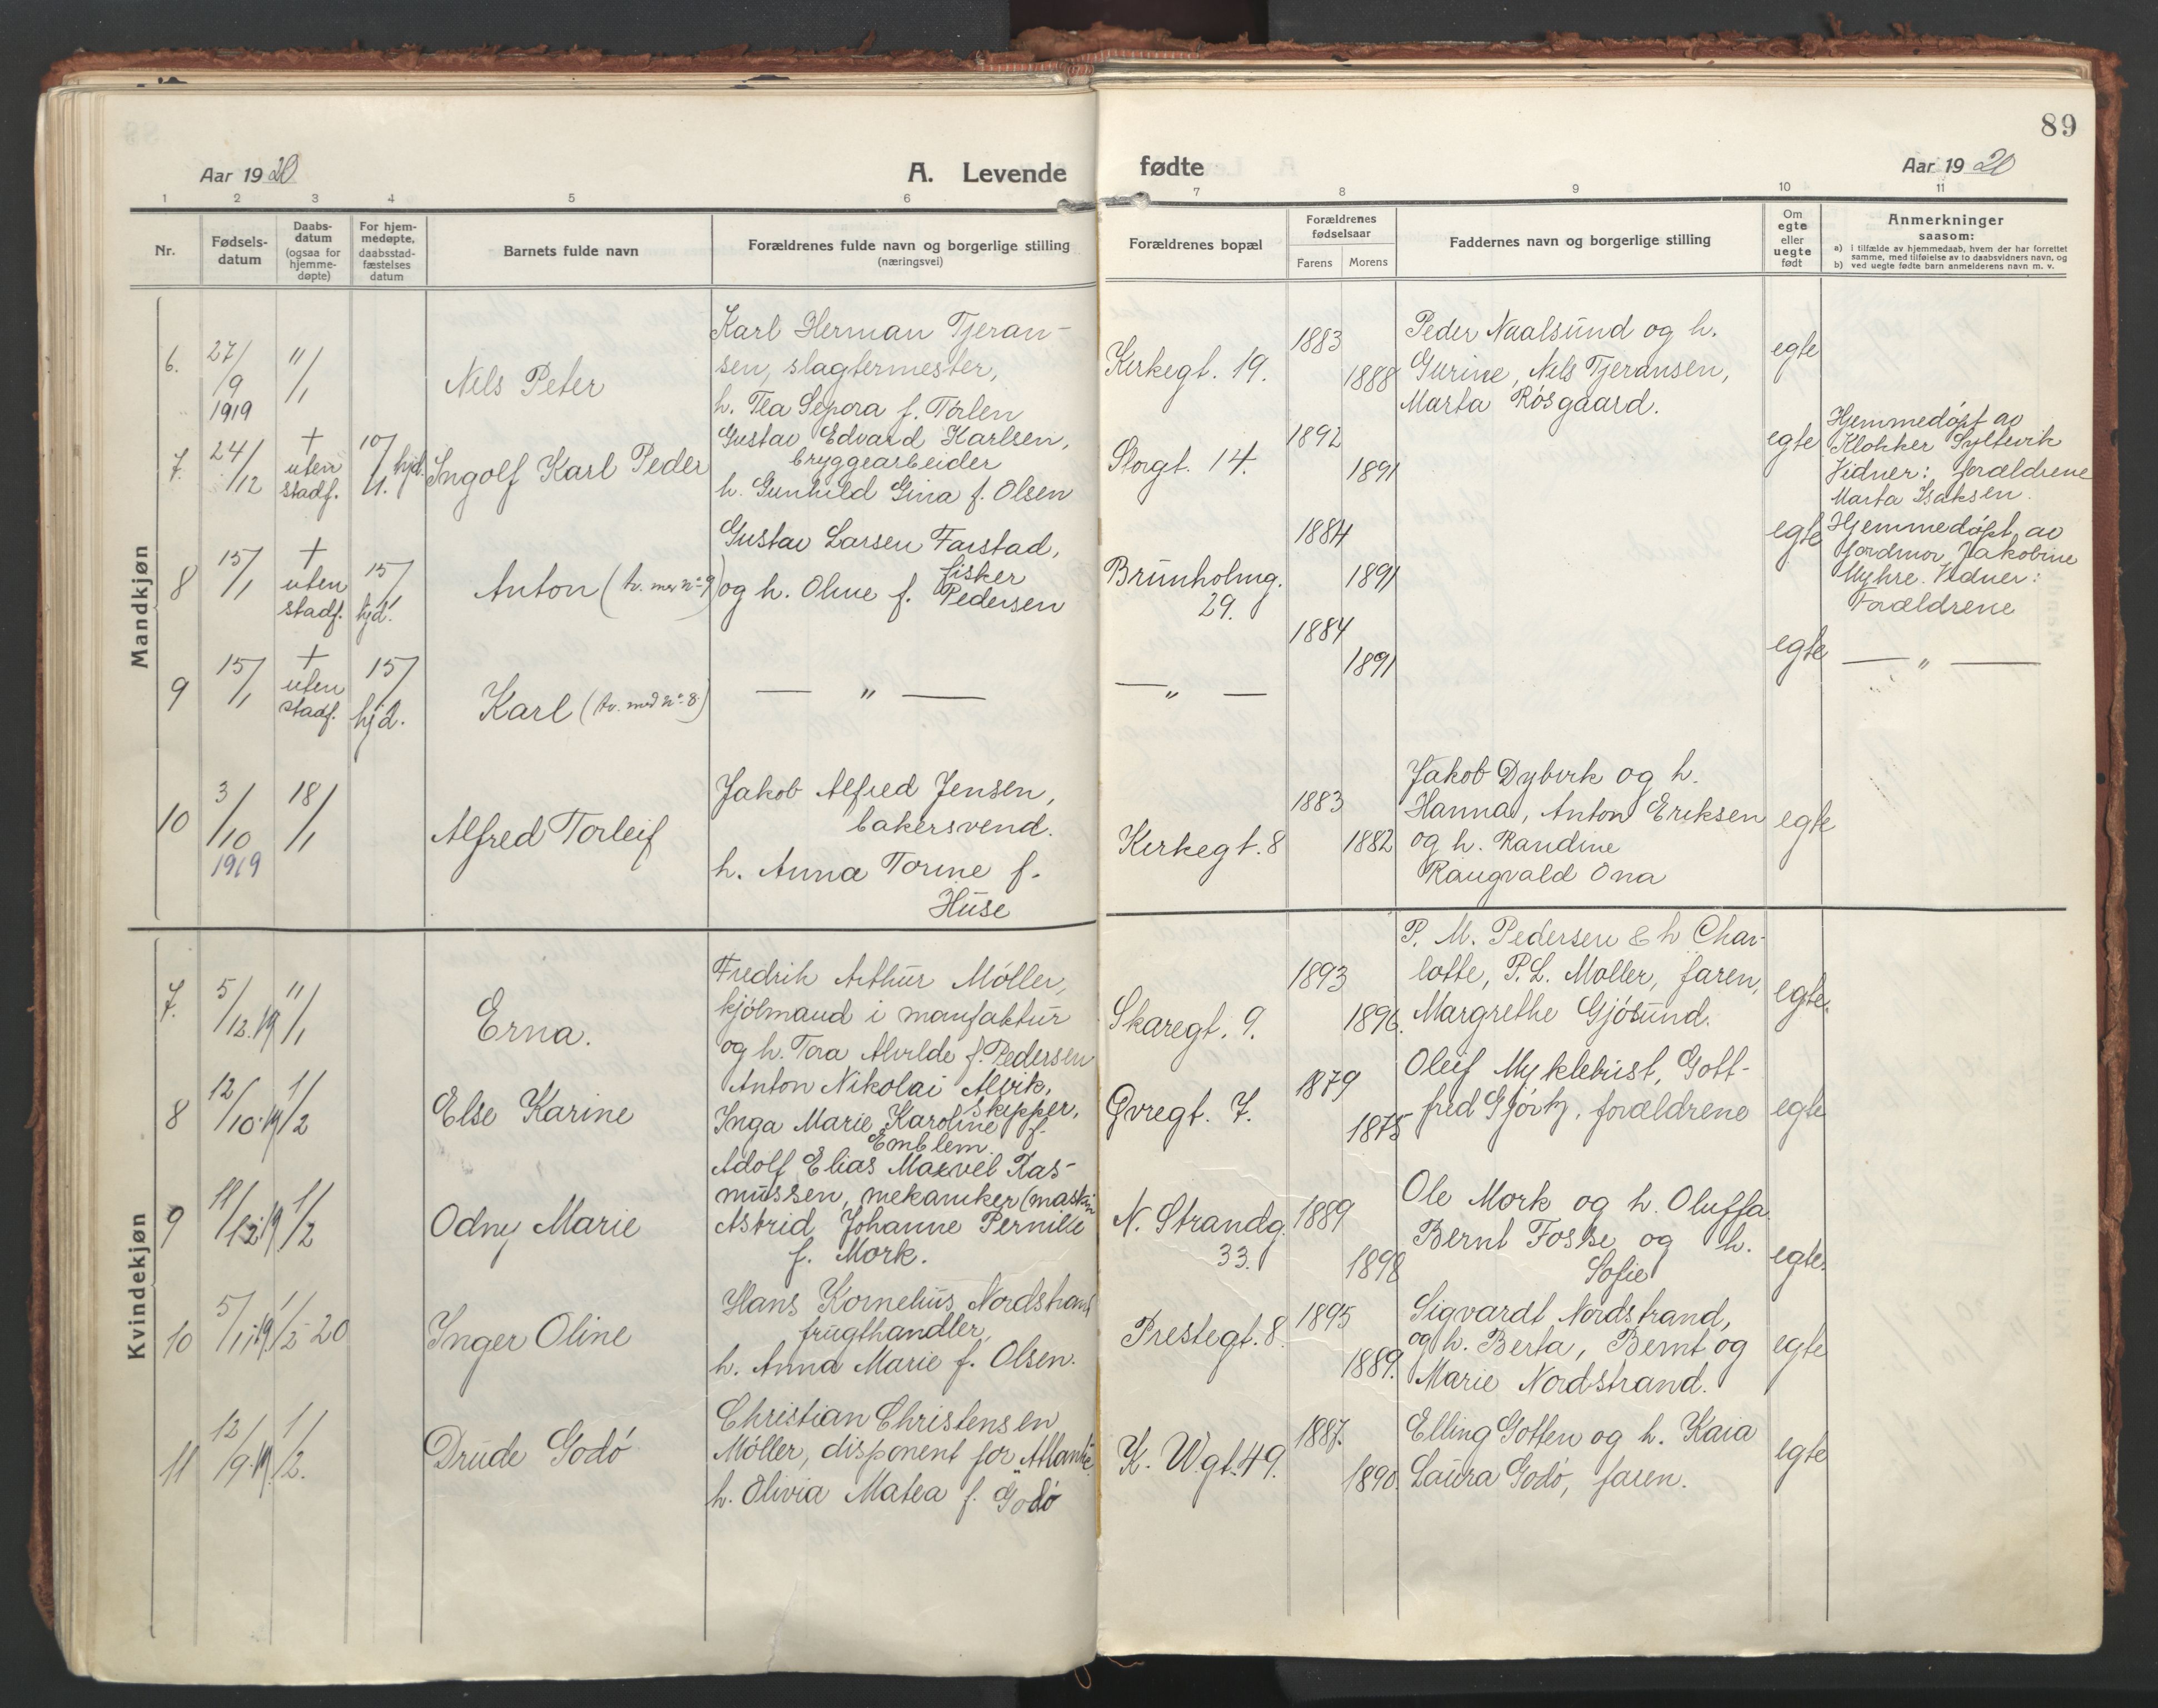 89
Aar 1920
A. Levende
fødte
Aar 1920
1 2 3 4 5 6 7 8 9 10 11
Nr.
Fødsels-
datum
Daabs-
datum
(ogsaa for
hjemme-
døpte)
For hjem-
medøpte,
daabsstad-
fæstelses
datum
Barnets fulde navn
Forældrenes fulde navn og borgerlige stilling
(næringsvei)
Forældrenes bopæl
Forældrenes
fødselsaar
Farens Morens
Faddernes navn og borgerlige stilling
Om
egte
eller
uegte
født
Anmerkninger
saasom:
a) i tilfælde av hjemmedaab, hvem der har forrettet
samme, med tilføielse av to daabsvidners navn, og
b) ved uegte fødte barn anmelderens navn m. v.
Mandkjøn
6.
27/9
1919
11/1
Nels Peter
Karl Herman Tjeran-
sen, slagtermester,
h. Tea Sepora f. Törlen
Kirkegt. 19.
1883
1888
Peder Naalsund og h.
Gurine, Nils Tjeransen,
Marta Røsgaard.
egte
7.
24/12
+
uten
stadf.
10/1. hjd.
Ingolf Karl Peder
Gustav Edvard Karlsen,
bryggearbeider
h. Gunhild Gina f. Olsen
Storgt. 14.
1892
1891
egte
Hjemmedøpt av
Klokker Syltevik
Vidner: forældrene
Marta Isaksen.
8
15/1
+
uten
stadf.
15/1
hjd.
Anton (tv. med no 9)
Gustav Larsen Farstad,
fisker
og h. Oline f. Pedersen
Brunholmg.
29.
1884
1891
egte
Hjemmedøpt av
jordmor Jakobine
Myhre. Vidner:
Forældrene
9
15/1
+
uten
stadf.
15/1
hjd.
Karl (tv. med no 8.)
— " —
— " —
1884
1891
egte
— " —
10
3/10
1919
18/1
Alfred Torleif
Jakob Alfred Jensen,
bakersvend.
h. Anna Torine f.
Huse
Kirkegt. 8
1883
1882
Jakob Dybvik og h.
Hanna, Anton Eriksen
og h. Randine
Raugvald Ona
egte
Kvindekjøn
7.
5/12.19
11/1
Erna.
Fredrik Arthur Möller,
kjølmand i manufaktur
og h. Tora Alvilde f. Pedersen
Skaregt. 9.
1893
1896.
P. M. Pedersen & h Char-
lotte, P. L. Møller, faren,
Margrethe Gjøsund.
egte.
8
12/10.19
1/2
Else Karine
Anton Nikolai Alvik,
skipper,
Inga Marie Karoline f.
Emblem.
Øvregt. 7.
1879
1875
Oleif Myklebust, Gott-
fred Gjørtz, forældrene
egte
9
11/12.19
1/2
Odny Marie
Adolf Elias Marvel Ras-
mussen, mekaniker (maskin
Astrid Johanne Pernille
f. Mork.
N. Strandg.
33.
1889
1898
Ole Mork og h. Oluffa
Bernt Fosse og h.
Sofie
egte.
10
5/11.19
1/2 20
Inger Oline
Hans Kornelius Nordstrand
frugthandler,
h. Anna Marie f. Olsen.
Prestegt. 8.
1895
1889.
Sigvardt Nordstrand,
og h. Berta, Bernt og
Marie Nordstrand.
egte
11
12/9.19.
1/2.
Drude Godö
Christian Christensen
Möller, disponent for Atlantic
h. Olivia Matea f. Godö
K. W.gt. 49.
1887.
1890.
Elling Gotten og h. Kaia
Laura Godø, faren.
egte